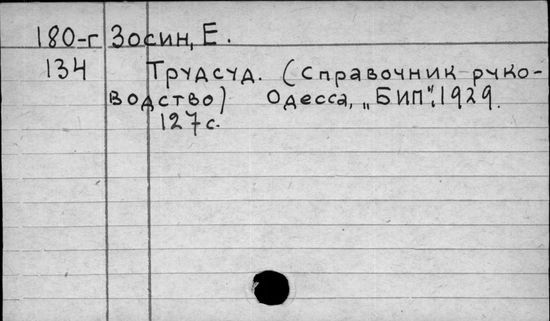 180-г Зосин, Е.
134 Трудсуд. (Справочник руко-
водство) Одесса, „БИП", 1929.
127 с.